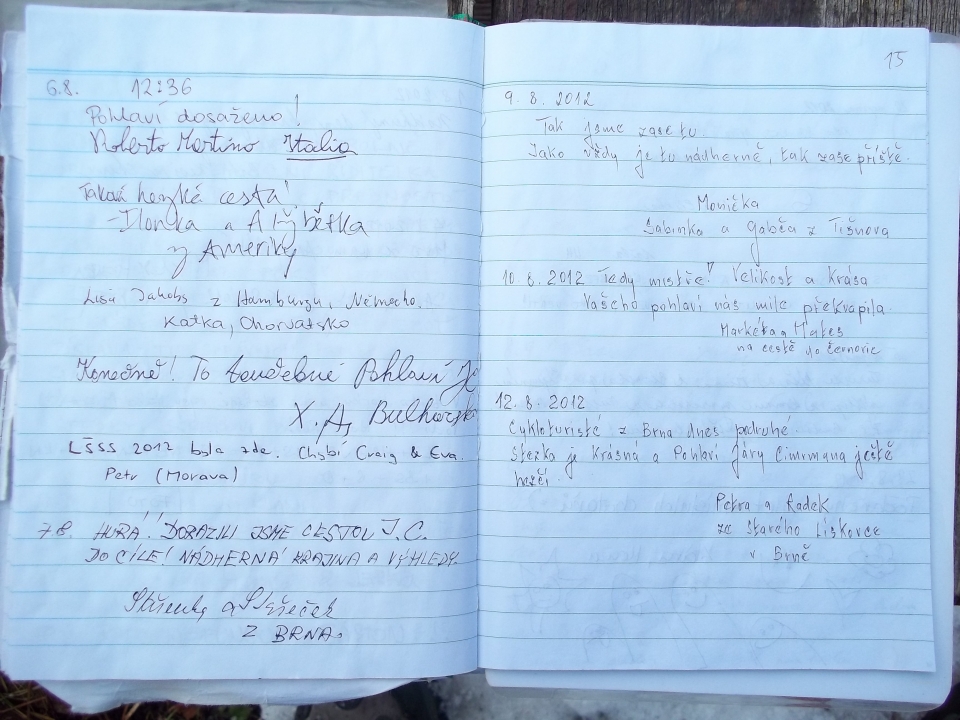 6.8. 12:36
Pohlaví dosaženo!
Roberto Martino Italia
Taková hezká cesta!
- Ilonka a Alžbětka
z Ameriky
Lisa Jakobs z Hamburgu, Německo,
Katka, Chorvatsko
Konečně! To Pohlaví Je
X. A. Bulharsko
LŠSS 2012 byla zde. Chybí Craig & Eva.
Petr (Morava)
7.8. HURÁ! DORAZILI JSME CESTOU J.C.
DO CÍLE! NÁDHERNÁ KRAJINA A VÝHLEDY.
a
Z BRNA.
15
9. 8. 2012
Tak jsme zase tu.
Jako vždy je tu nádherně, tak zase příště.
Monička
Sabinka a Gabča z Tišnova
10. 8. 2012 Tedy mistře! Velikost a krása
Vašeho pohlaví nás mile překvapila.
Markéta a Mates
na cestě do Černovic
12. 8. 2012
Cykloturisté z Brna dnes podruhé.
Stezka je krásná a Pohlaví Járy Cimrmana ještě
hezčí.
Petra a Radek
ze Starého Lískovce
v Brně